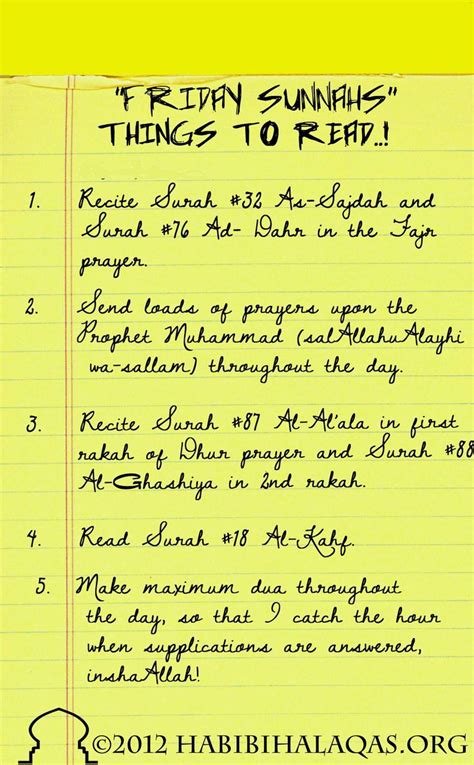 "FRIDAY SUNNAHS"
THINGS TO READ..!
1. Recite Surah #32 As-Sajdah and
Surah #76 Ad- Dahr in the Fajr
prayer.
2. Send loads of prayers upon the
Prophet Muhammad (salAllahuAlayhi
wa-sallam) throughout the day.
3. Recite Surah #87 Al-Al'ala in first
rakah of Dhur prayer and Surah #88
Al-Ghashiya in 2nd rakah.
4. Read Surah #18 Al-Kahf.
5. Make maximum dua throughout
the day, so that I catch the hour
when supplications are answered,
inshaAllah!
©2012 HABIBIHALAQAS.ORG